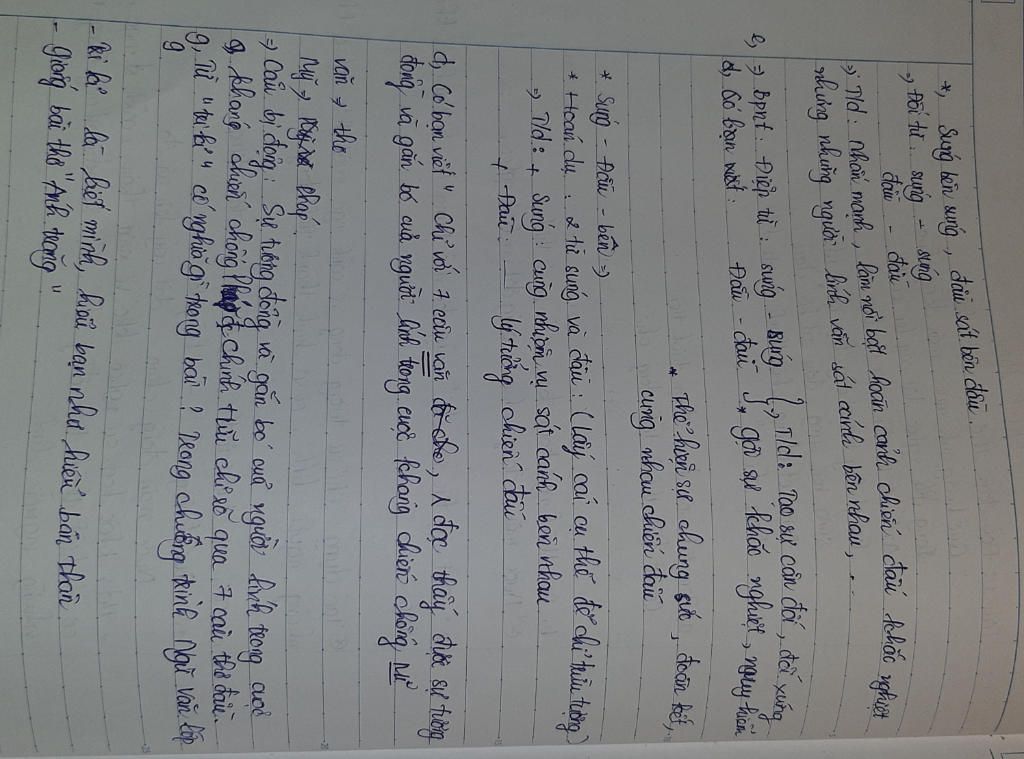 *, Súng bên súng, đầu sát bên đầu.
→ Đối từ: súng - súng
đầu - đầu
⇒ T/d: Nhấn mạnh, làm nổi bật hoàn cảnh chiến đấu khốc nghiệt
nhưng những người lính vẫn sát cánh bên nhau, ...
e, ⇒ Bpnt: Điệp từ: súng - súng } ⇒ T/d: Tạo sự cân đối, đối xứng
đầu - đầu } * gợi sự khốc nghiệt, nguy hiểm
d, Có bạn viết:
* Thể hiện sự chung sức, đoàn kết,
cùng nhau chiến đấu
* Súng - Đầu - bên ⇒
* Hoán dụ: 2 từ súng và đầu: (lấy cái cụ thể để chỉ trừu tượng)
⇒ T/d: + Súng: cùng nhiệm vụ sát cánh bên nhau
+ Đầu: lý tưởng chiến đấu
d, Có bạn viết " Chỉ với 7 câu văn, ta đọc thấy được sự tương
đồng và gắn bó của người lính trong cuộc kháng chiến chống Mĩ
văn ⇒ thơ
Mỹ ⇒ Pháp
⇒ Câu bị động: Sự tương đồng và gắn bó của người lính trong cuộc
kháng chiến chống Pháp chính Hữu chỉ rõ qua 7 câu thơ đầu.
g, Từ "tri kỉ" có nghĩa gì trong bài? Trong chương trình Ngữ văn lớp
9
- tri kỉ là biết mình, hiểu bạn như hiểu bản thân
- giống bài thơ "Ánh trăng"